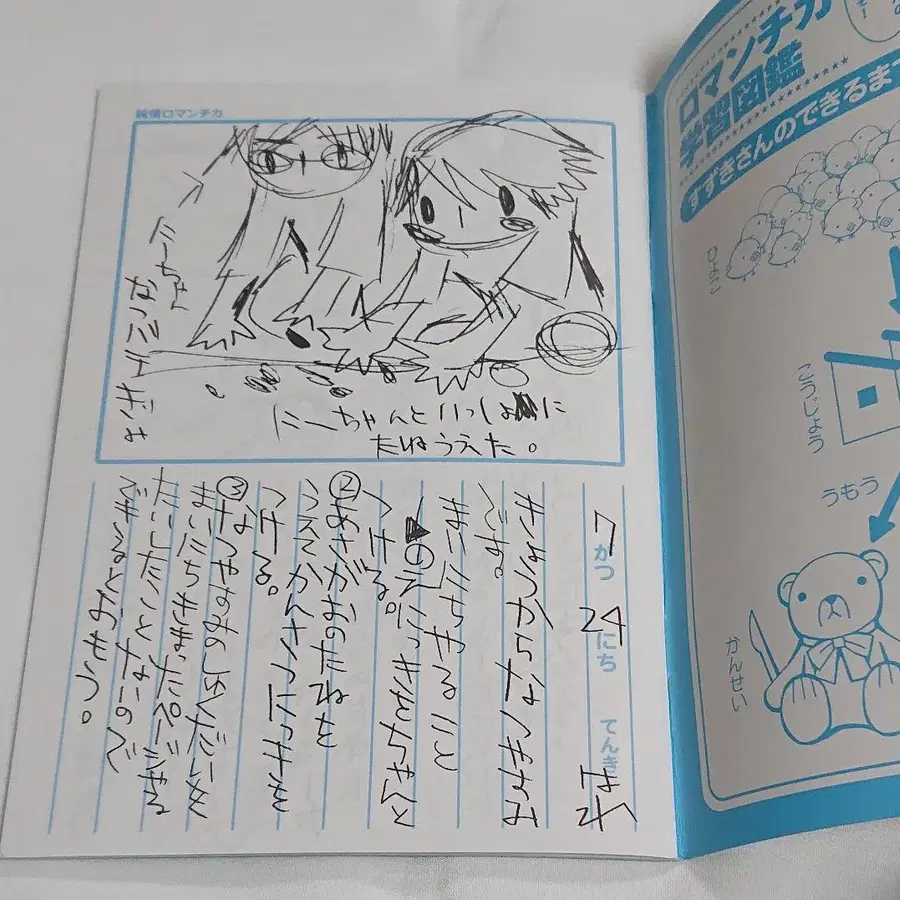 純情ロマンチカ
にーちゃん
なつバテぎみ
にーちゃんといっしょに
たねうえた。
7がつ 24にち てんき はれ
きょうからなつやすみ
です。
まいにちやること
①えにっきをちゃんと
つける。
②あさがおのたねを
うえてかんさつにっきを
つける。
③なつやすみしゅくだいを
まいにちきまったぺーじやる
たいしたことないので
できるとおもう。
ロマンチカ
学習図鑑
すずきさんのできるまで
ひよこ
こうじょう
うもう
かんせい